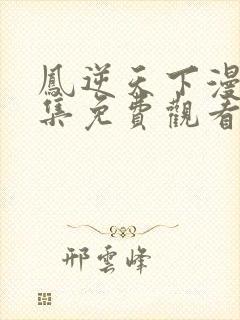 鳳逆天下漫
集免費觀看
邢雲峰